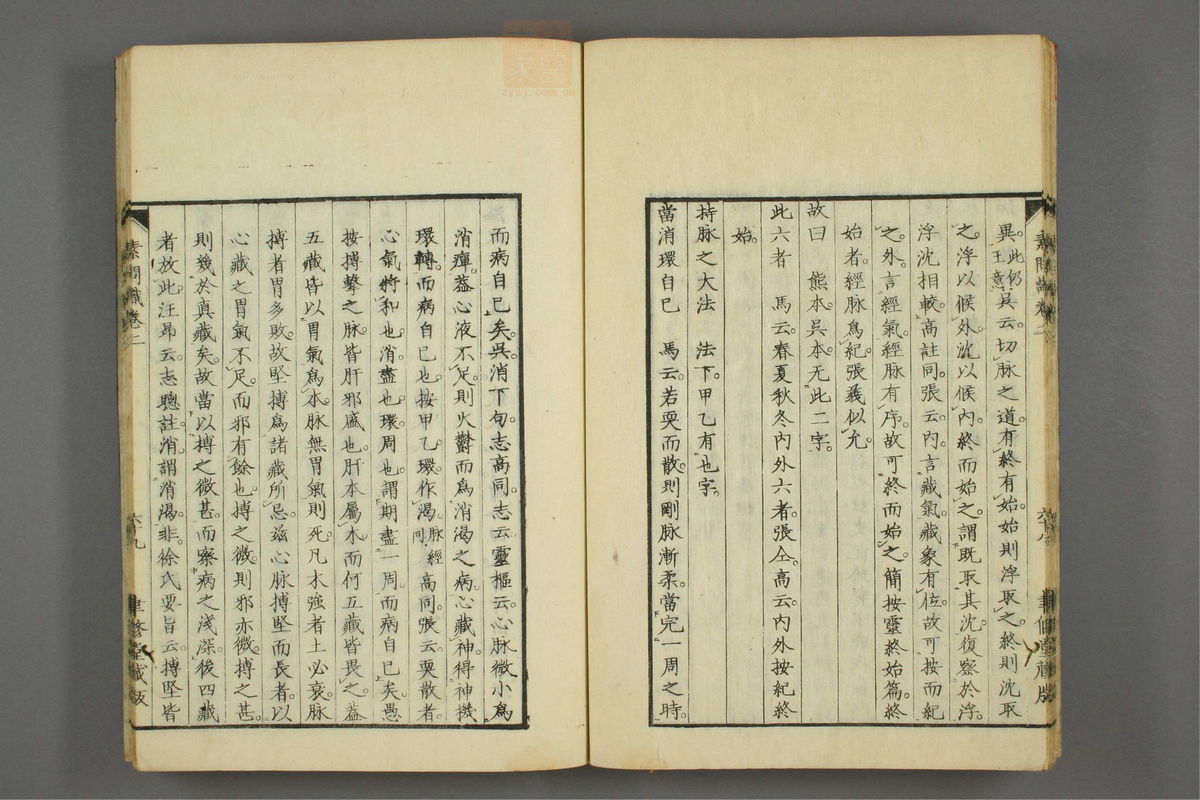 異。此仍王意吳云切脈之道有終有始始則浮取之終則沈取
之浮以候外沈以候內終而始之謂既取其沈復察於浮。
浮沈相較。高註同。張云內言藏氣藏象有位。故可按而紀
之外。言經氣經脈有序。故可終而始之。簡按靈終始篇。終
始者經脈爲紀。張義似允。
故曰　熊本。吳本。无此二字。
此六者　馬云春夏秋冬內外六者。張仝。高云內外按紀終
始。
持脈之大法　法下。甲乙有也字。
當消環自已　馬云。若耎而散。則剛脈漸柔。當完一周之時。
素問識卷二
六九
聿修堂藏版
而病自已矣。吳消下句。志高同。志云靈樞云心脈微小爲
消癉。蓋心液不足。則火鬱而爲消渴之病。心藏神得神機
環轉。而病自已也。按甲乙環。作渴。脈經同高同。張云耎散者。
心氣將和也。消盡也。環周也。謂期盡一周。而病自已矣。愚
按搏擊之脈。皆肝邪盛也。肝本屬木。而何五藏皆畏之。蓋
五藏皆以胃氣爲本。脈無胃氣則死。凡木強者土必衰。脈
搏者胃多敗。故堅搏爲諸藏所忌。茲心脈搏堅而長者。以
心藏之胃氣不足。而邪有餘也。搏之微。則邪亦微。搏之甚。
則幾於真藏矣。故當以搏之微甚。而察病之淺深。後四藏
者放此。汪昂云志聰註。消謂消渴。非。徐氏要旨云。搏堅皆